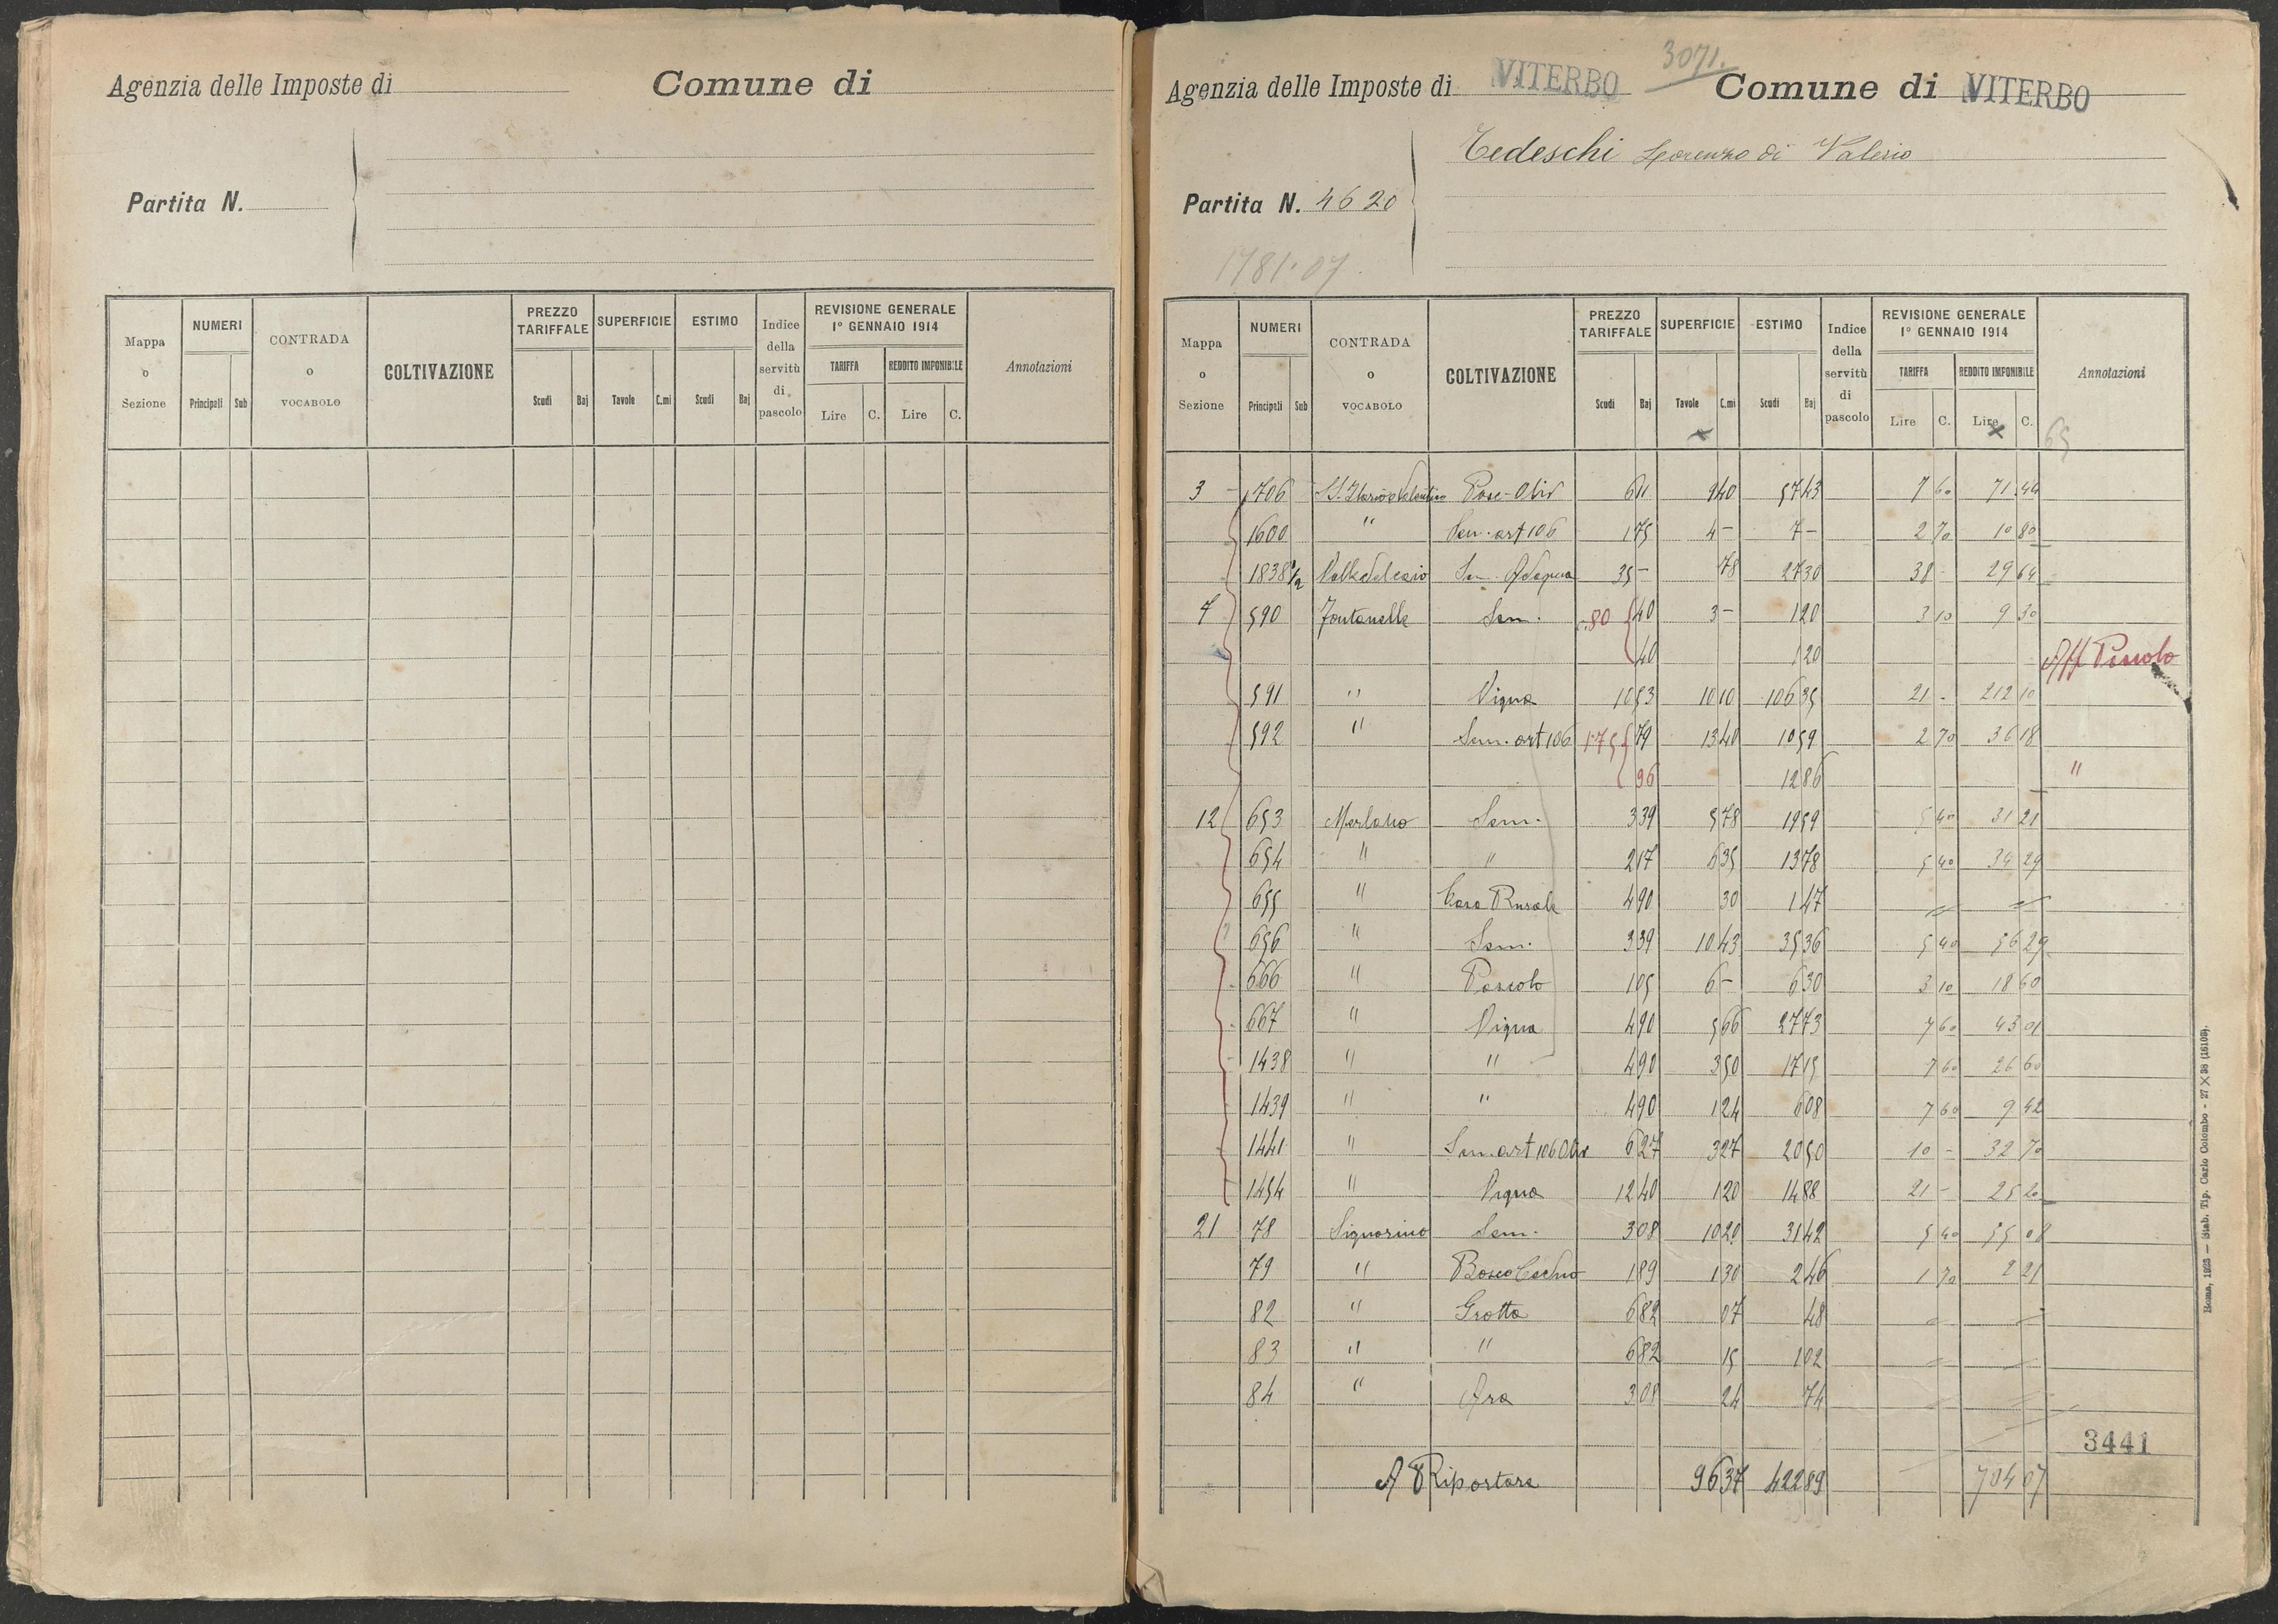 Agenzia delle Imposte di Comune di
Partita N.
Mappa o Sezione NUMERI CONTRADA o VOCABOLO COLTIVAZIONE PREZZO TARIFFALE SUPERFICIE ESTIMO Indice della servitù di pascolo REVISIONE GENERALE 1° GENNAIO 1914 Annotazioni
TARIFFA REDDITO IMPONIBILE
Principali Sub Scudi Baj Tavole C.mi Scudi Baj Lire C. Lire C.
3071.
Agenzia delle Imposte di VITERBO Comune di VITERBO
Tedeschi Lorenzo di Valerio
Partita N. 4620
1781.07.
Mappa o Sezione NUMERI CONTRADA o VOCABOLO COLTIVAZIONE PREZZO TARIFFALE SUPERFICIE ESTIMO Indice della servitù di pascolo REVISIONE GENERALE 1° GENNAIO 1914 Annotazioni
TARIFFA REDDITO IMPONIBILE
Principali Sub Scudi Baj Tavole C.mi Scudi Baj Lire C. Lire C.
65
3 706 S.S. Ilario e Valentino Pasc. Oliv 6 11 9 40 57 43 7 60 71 44
1600 " Sem. art 106 1 75 4 - 7 - 2 70 10 80
1838 1/2 Sem. Adacqua 35 - 78 27 30 38 - 29 64
7 590 Fontanelle Sem. .80 40 3 - 1 20 3 10 9 30
40 1 20 Aff Pascolo
591 " Vigna 10 53 10 10 106 35 21 - 212 10
592 " Sem. art 106 1.75 79 13 40 10 59 2 70 36 18
96 12 86 "
12 653 Merlano Sem. 3 39 5 78 19 59 5 40 31 21
654 " " 2 17 6 35 13 78 5 40 34 29
655 " Casa Rurale 4 90 30 1 47
656 " Sem. 3 39 10 43 35 36 5 40 56 29
666 " Pascolo 1 05 6 - 6 30 3 10 18 60
667 " Vigna 4 90 5 66 27 73 7 60 43 01
1438 " " 4 90 3 50 17 15 7 60 26 60
1439 " " 4 90 1 24 6 08 7 60 9 42
1441 " Sem. art 106 Oliv 6 27 3 27 20 50 10 - 32 70
1454 " Vigna 12 40 1 20 14 88 21 - 25 20
21 78 Signorino Sem. 3 08 10 20 31 42 5 40 55 08
79 " Bosco Ceduo 1 89 1 30 2 46 1 70 2 21
82 " Grotta 6 82 07 48
83 " " 6 82 15 1 02
84 " Ara 3 08 24 74
3441
A Riportare 96 37 422 89 704 07
Roma, 1923 — Stab. Tip. Carlo Colombo - 27 X 38 (16109).